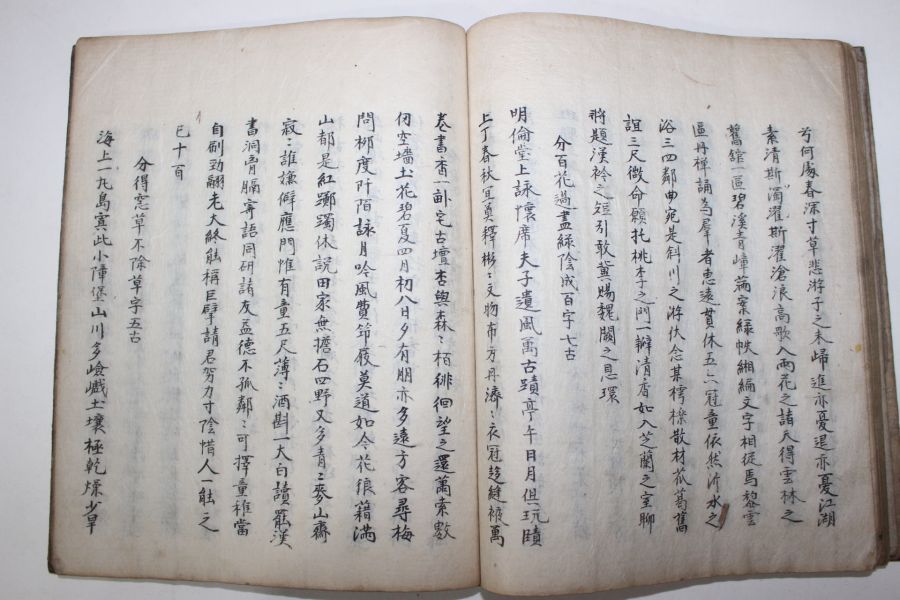 兮何處春深寸草悲游子之未歸進亦憂退亦憂江湖
素清斯濁濯斯濯滄浪高歌入雨花之諸天得雲林之
舊舘一區碧溪青嶂萹案綠帙緗編文字相從馬黎雲
區丹禪誦為羣者惠遠貫休五六冠童依然沂水之
浴三四鄰曲宛是斜川之游伏念某樗櫟散材菰蔔舊
誼三尺微命願托桃李之門一瓣清香如入芝蘭之室聊
將題溪衿之短引敢冀賜魏闕之息環
分百花過盡綠陰成百字七古
明倫堂上詠懷席夫子遺風萬古蹟亭午日月但玩賾
上丁春秋宜奠釋彬〻文物布方丹濟〻衣冠趍縫掖萬
卷書香一畝宅古壇杏與森〻栢徘徊望之還蕭索數
仞空墻土花碧夏四月初八日夕有朋亦多遠方客尋梅
問柳度阡陌詠月吟風費筇屐莫道如今花狼籍滿
山都是紅躑躅休說田家無擔石四野又多青〻麥山齋
寂〻誰嫌僻應門惟有童五尺薄〻酒斟一大白讀罷漢
書洞青膈寄語同研諸友益德不孤鄰〻可擇童稚當
自刷勁翮老大終能稱巨擘請君努力寸陰惜人一能之
已十百
分得窓草不除草字五古
海上一丸島寘此小陣堡山川多嶮巇土壤極乾燥少旱